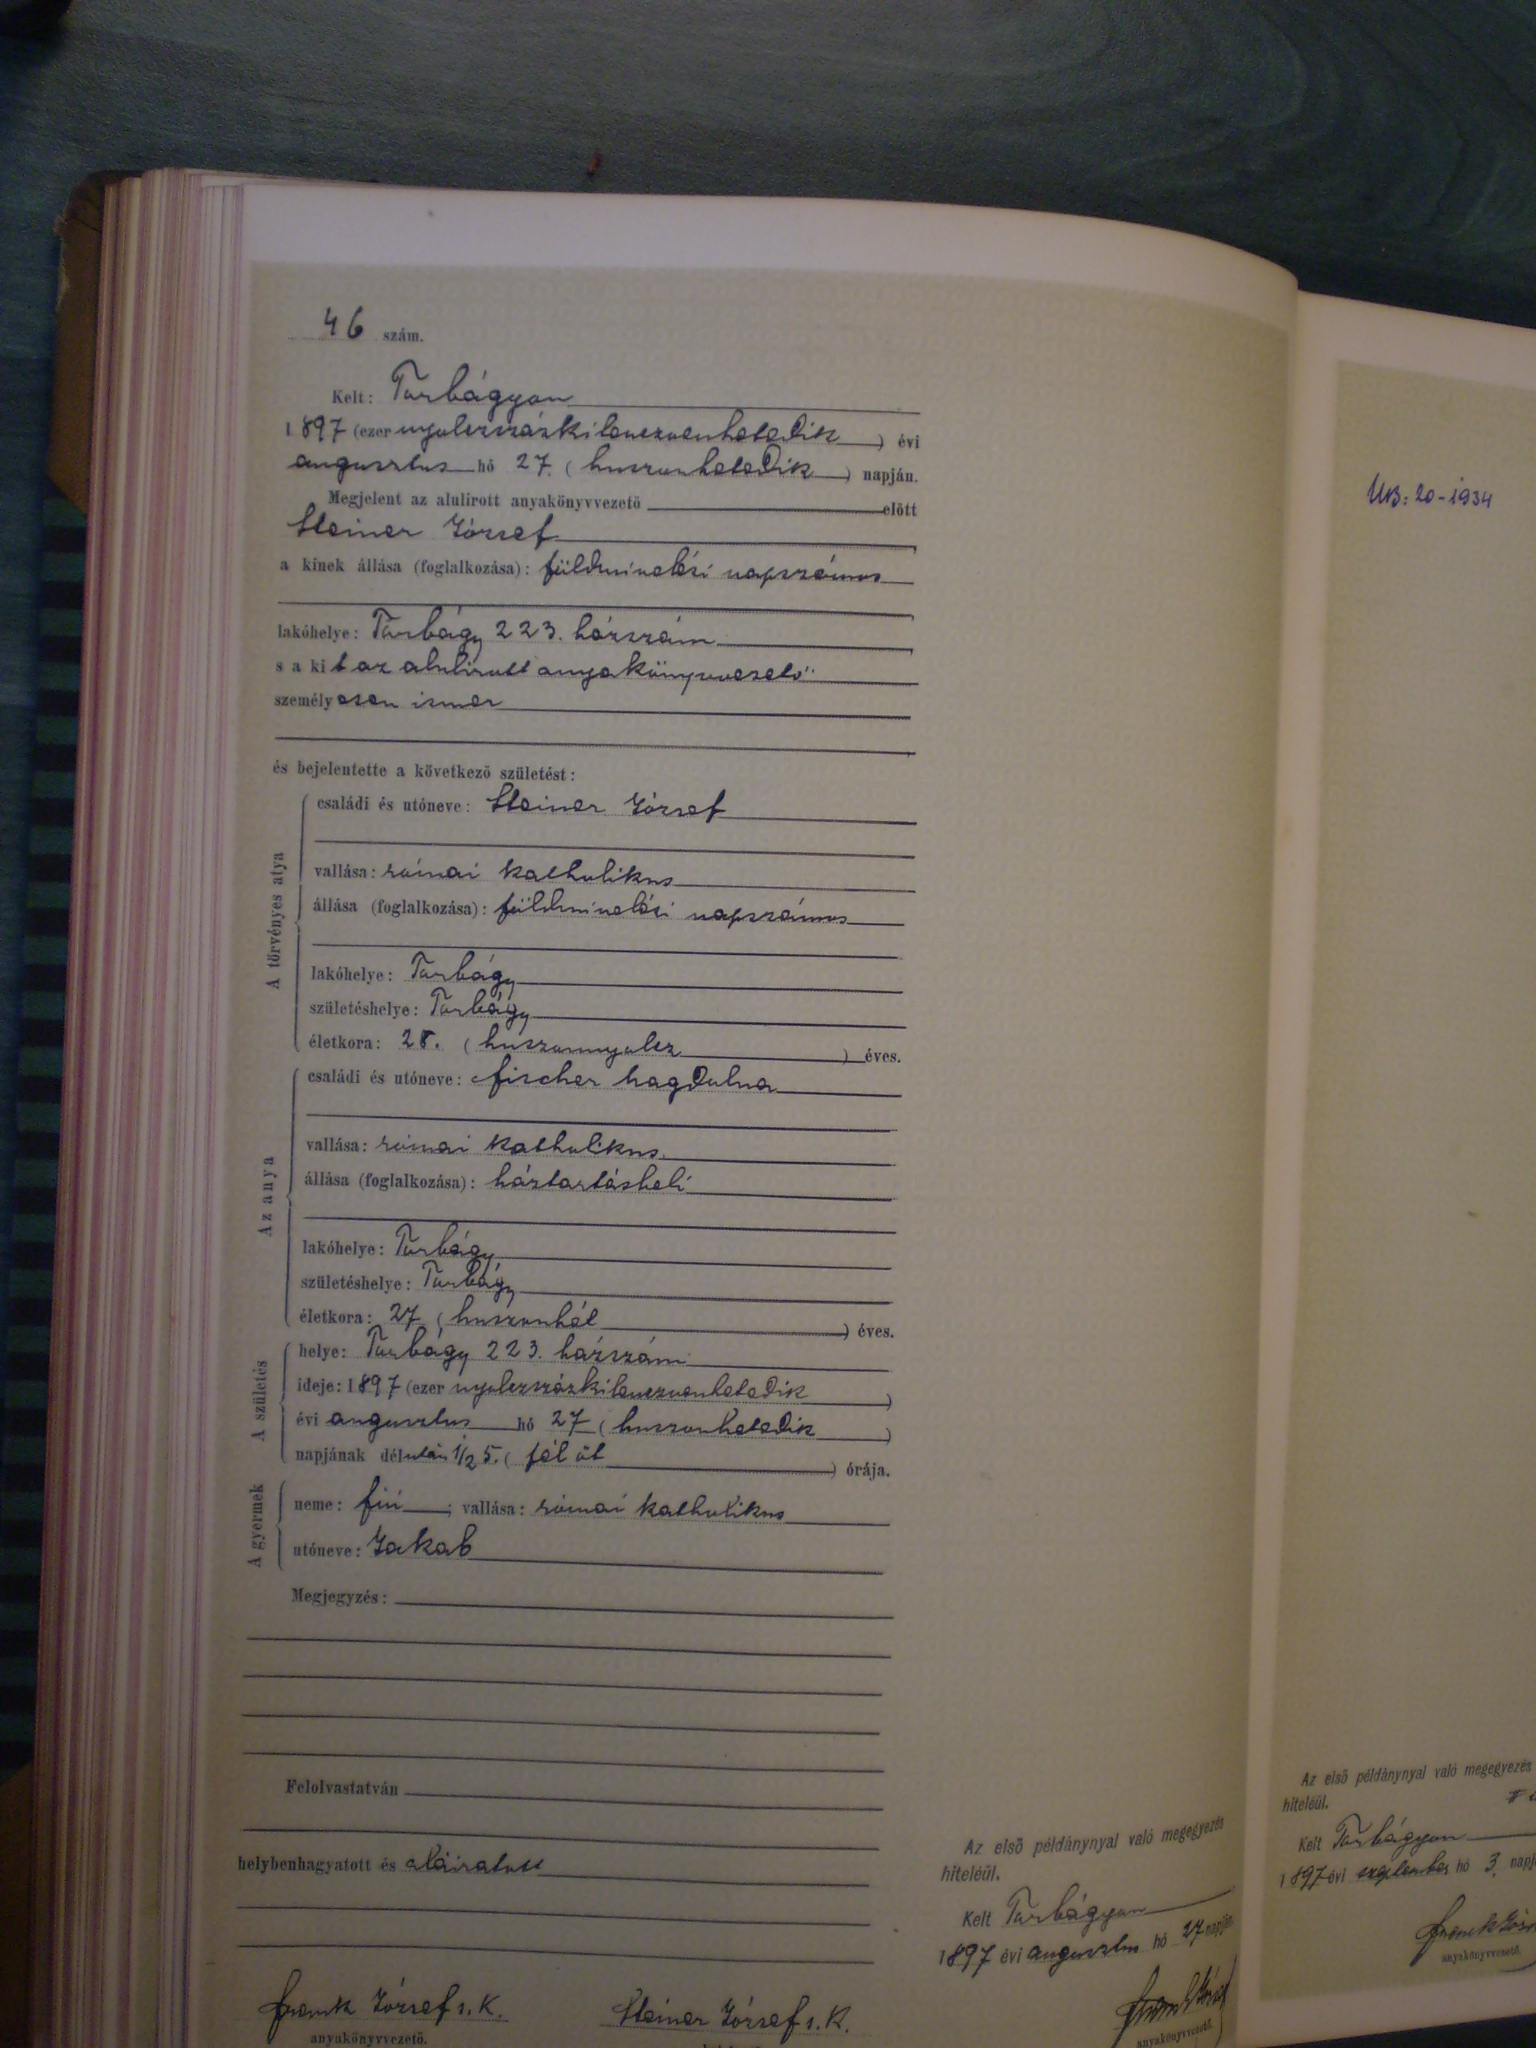 46 szám.
Kelt: Torbágyon
1897 (ezer nyolczszázkilenczvenhetedik) évi
augusztus hó 27. (huszonhetedik) napján.
Megjelent az alulirott anyakönyvvezető előtt
Steiner József
a kinek állása (foglalkozása): földmivelési napszámos
lakóhelye: Torbágy 223. házszám
s a kit az alulirott anyakönyvvezető
személyesen ismer
és bejelentette a következő születést:
A törvényes atya
családi és utóneve: Steiner József
vallása: római katholikus
állása (foglalkozása): földmivelési napszámos
lakóhelye: Torbágy
születéshelye: Torbágy
életkora: 28. (huszonnyolcz) éves.
Az anya
családi és utóneve: Fischer Magdolna
vallása: római katholikus.
állása (foglalkozása): háztartásbeli
lakóhelye: Torbágy
születéshelye: Torbágy
életkora: 27 (huszonhét) éves.
A születés
helye: Torbágy 223. házszám
ideje: 1897 (ezer nyolczszázkilenczvenhetedik)
évi augusztus hó 27 (huszonhetedik)
napjának délután 1/2 5. (fél öt) órája.
A gyermek
neme: fiú; vallása: római katholikus
utóneve: Jakab
Megjegyzés:
Felolvastatván
helybenhagyatott és aláiratott
József s. k.
anyakönyvvezető.
Steiner József s. k.
Az első példánynyal való megegyezés
hiteléül.
Kelt Torbágyon
1897 évi augusztus hó 27 napján
József
anyakönyvvezető.
20-1934
Az első példánynyal való megegyezés
hiteléül.
Kelt Torbágyon
1897 évi szeptember hó 3.
anyakönyvvezető.